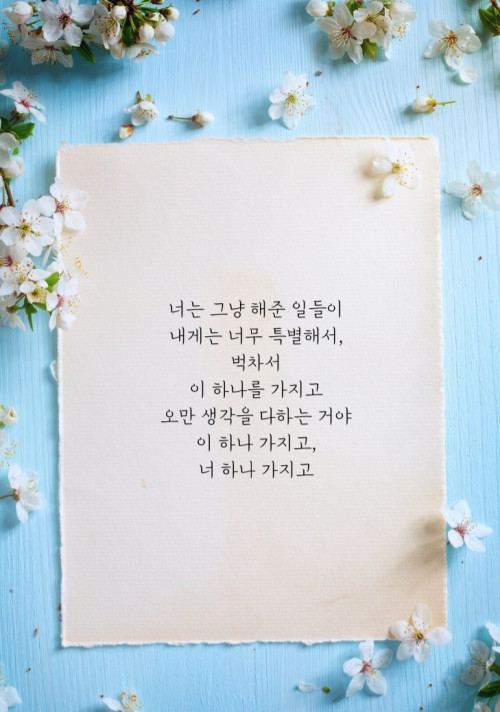 너는 그냥 해준 일들이
내게는 너무 특별해서,
벅차서
이 하나를 가지고
오만 생각을 다하는 거야
이 하나 가지고,
너 하나 가지고